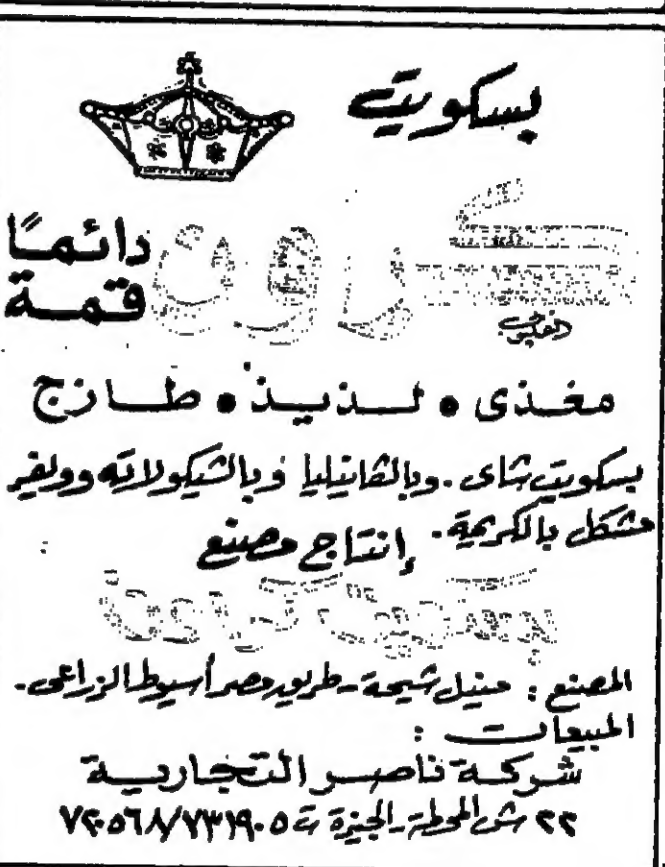 بسكويت
كراون
دائمًا
قمة
مغذى • لـذيـذ • طـازج
بسكويت شاى . وبالڤانيليا وبالشيكولاته وويفر
مشكل بالكريمة . إنتاج مصنع
بسكويت كراون
المصنع : منيل شيحة - طريق مصر أسيوط الزراعى .
المبيعات :
شركة ناصر التجارية
٢٢ ش المحطة - الجيزة ت ٧٣١٩٠٥/٧٢٠٥٦٨